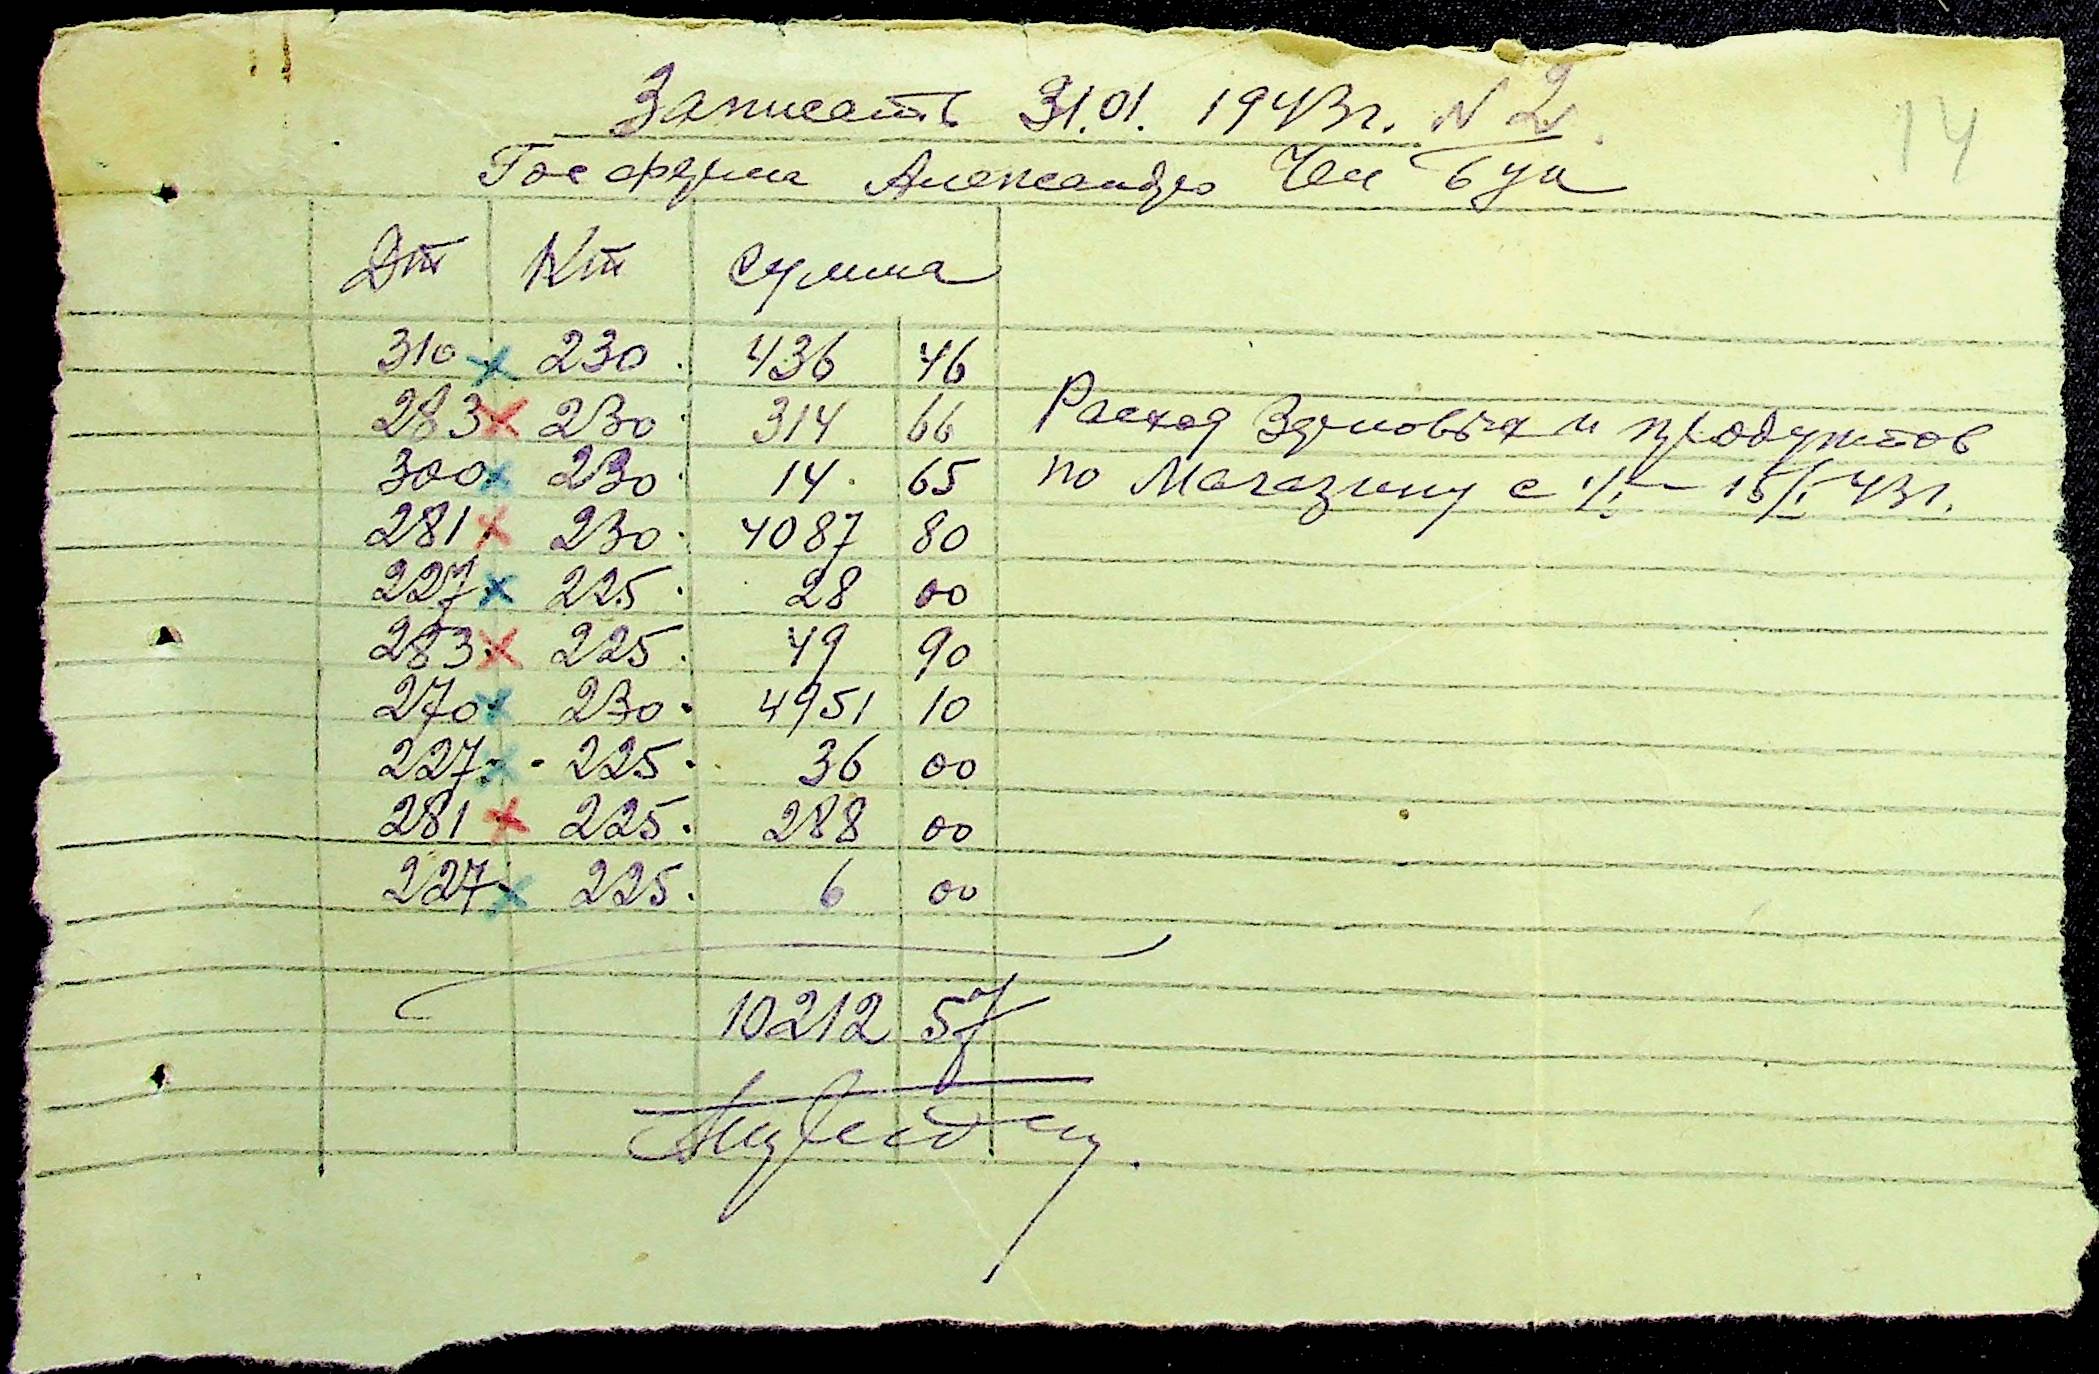 14
Записать 31.01. 1943г. N 2.
Госферма Александро
Дт Кт Сумма
310 230 436 46
283 230 314 66
300 230 14 65
281 230 4087 80
227 225 28 00
283 225 49 90
270 230 4951 10
227 225 36 00
281 225 288 00
227 225 6 00
Расход Зерновых и продуктов
по Магазину с 1/I – 15/I 43г.
10212 57